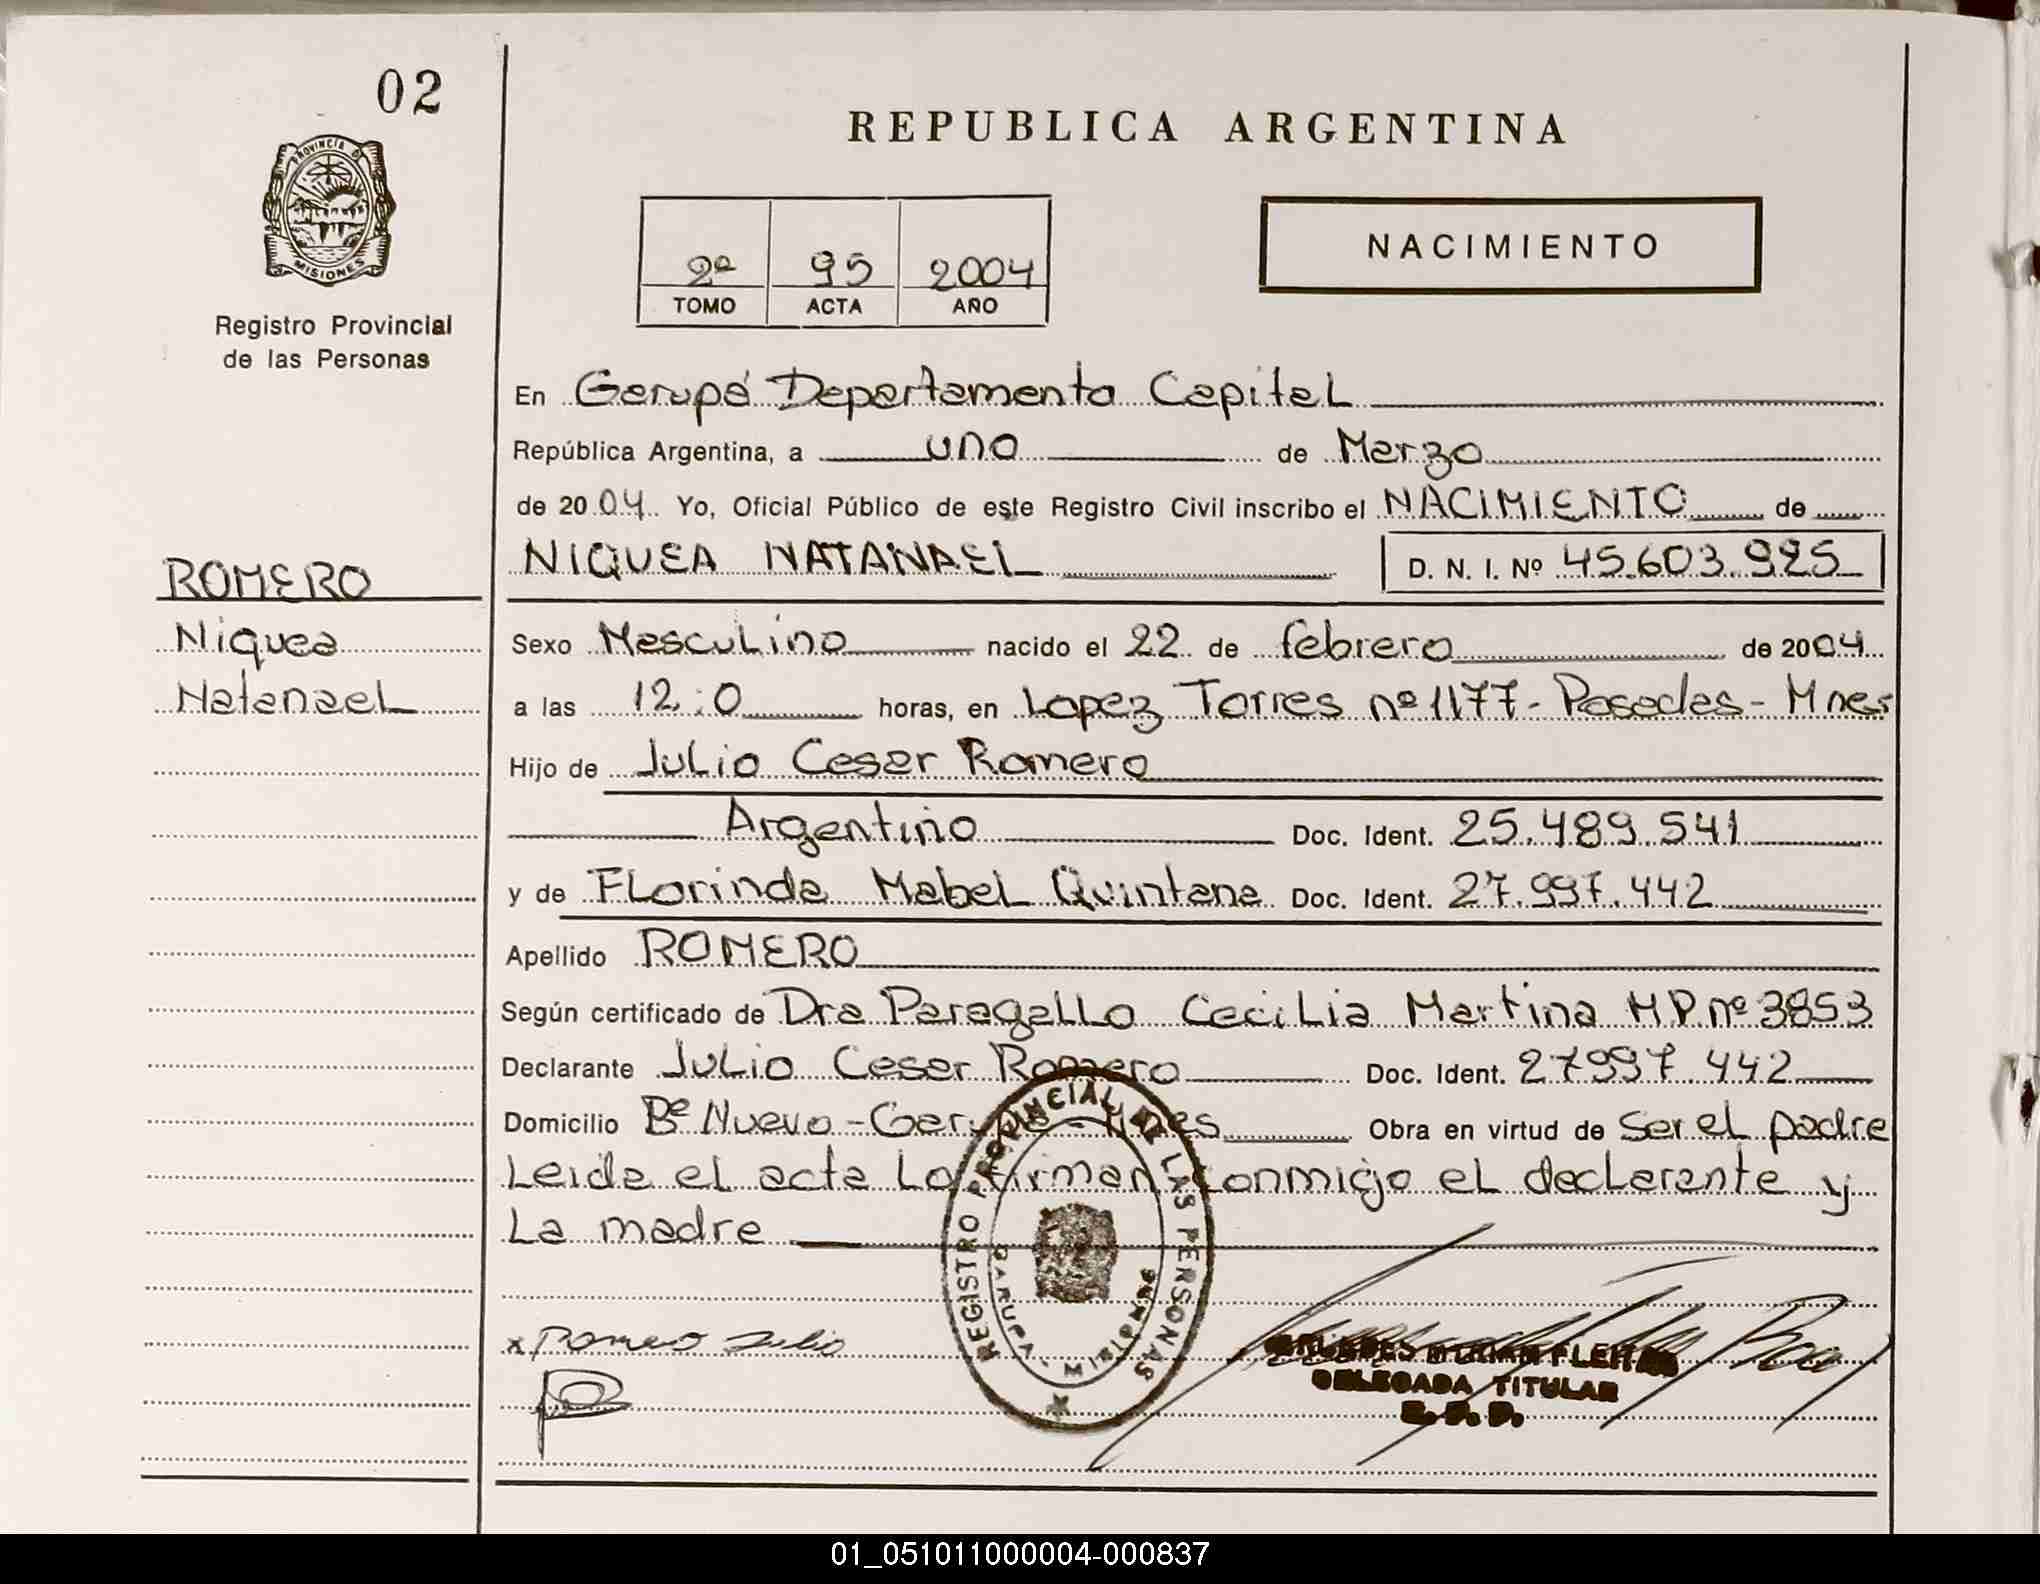 02
REPUBLICA ARGENTINA
PROVINCIA D MISIONES
Registro Provincial
de las Personas
2º 95 2004
TOMO ACTA AÑO
NACIMIENTO
En Garupá Departamento Capital
República Argentina, a uno de Marzo
de 2004 Yo, Oficial Público de este Registro Civil inscribo el NACIMIENTO de
NIQUEA NATANAEL D. N. I. Nº 45.603.925
ROMERO
Niquea
Natanael
Sexo Masculino nacido el 22 de febrero de 2004
a las 12:0 horas, en Lopez Torres nº 1177- Posadas- Mnes
Hijo de Julio Cesar Romero
Argentino Doc. Ident. 25.489.541
y de Florinda Mabel Quintana Doc. Ident. 27.997.442
Apellido ROMERO
Según certificado de Dra Paragallo Cecilia Martina M.P. nº 3853
Declarante Julio Cesar Romero Doc. Ident. 27997.442
Domicilio Bº Nuevo - Garupá - Mnes Obra en virtud de Ser el padre
Leida el acta La firman conmigo el declarante y
La madre
REGISTRO PROVINCIAL DE LAS PERSONAS
GARUPA - MISIONES
x Romero Julio
MIRIAN FLEITAS
DELEGADA TITULAR
01_051011000004-000837